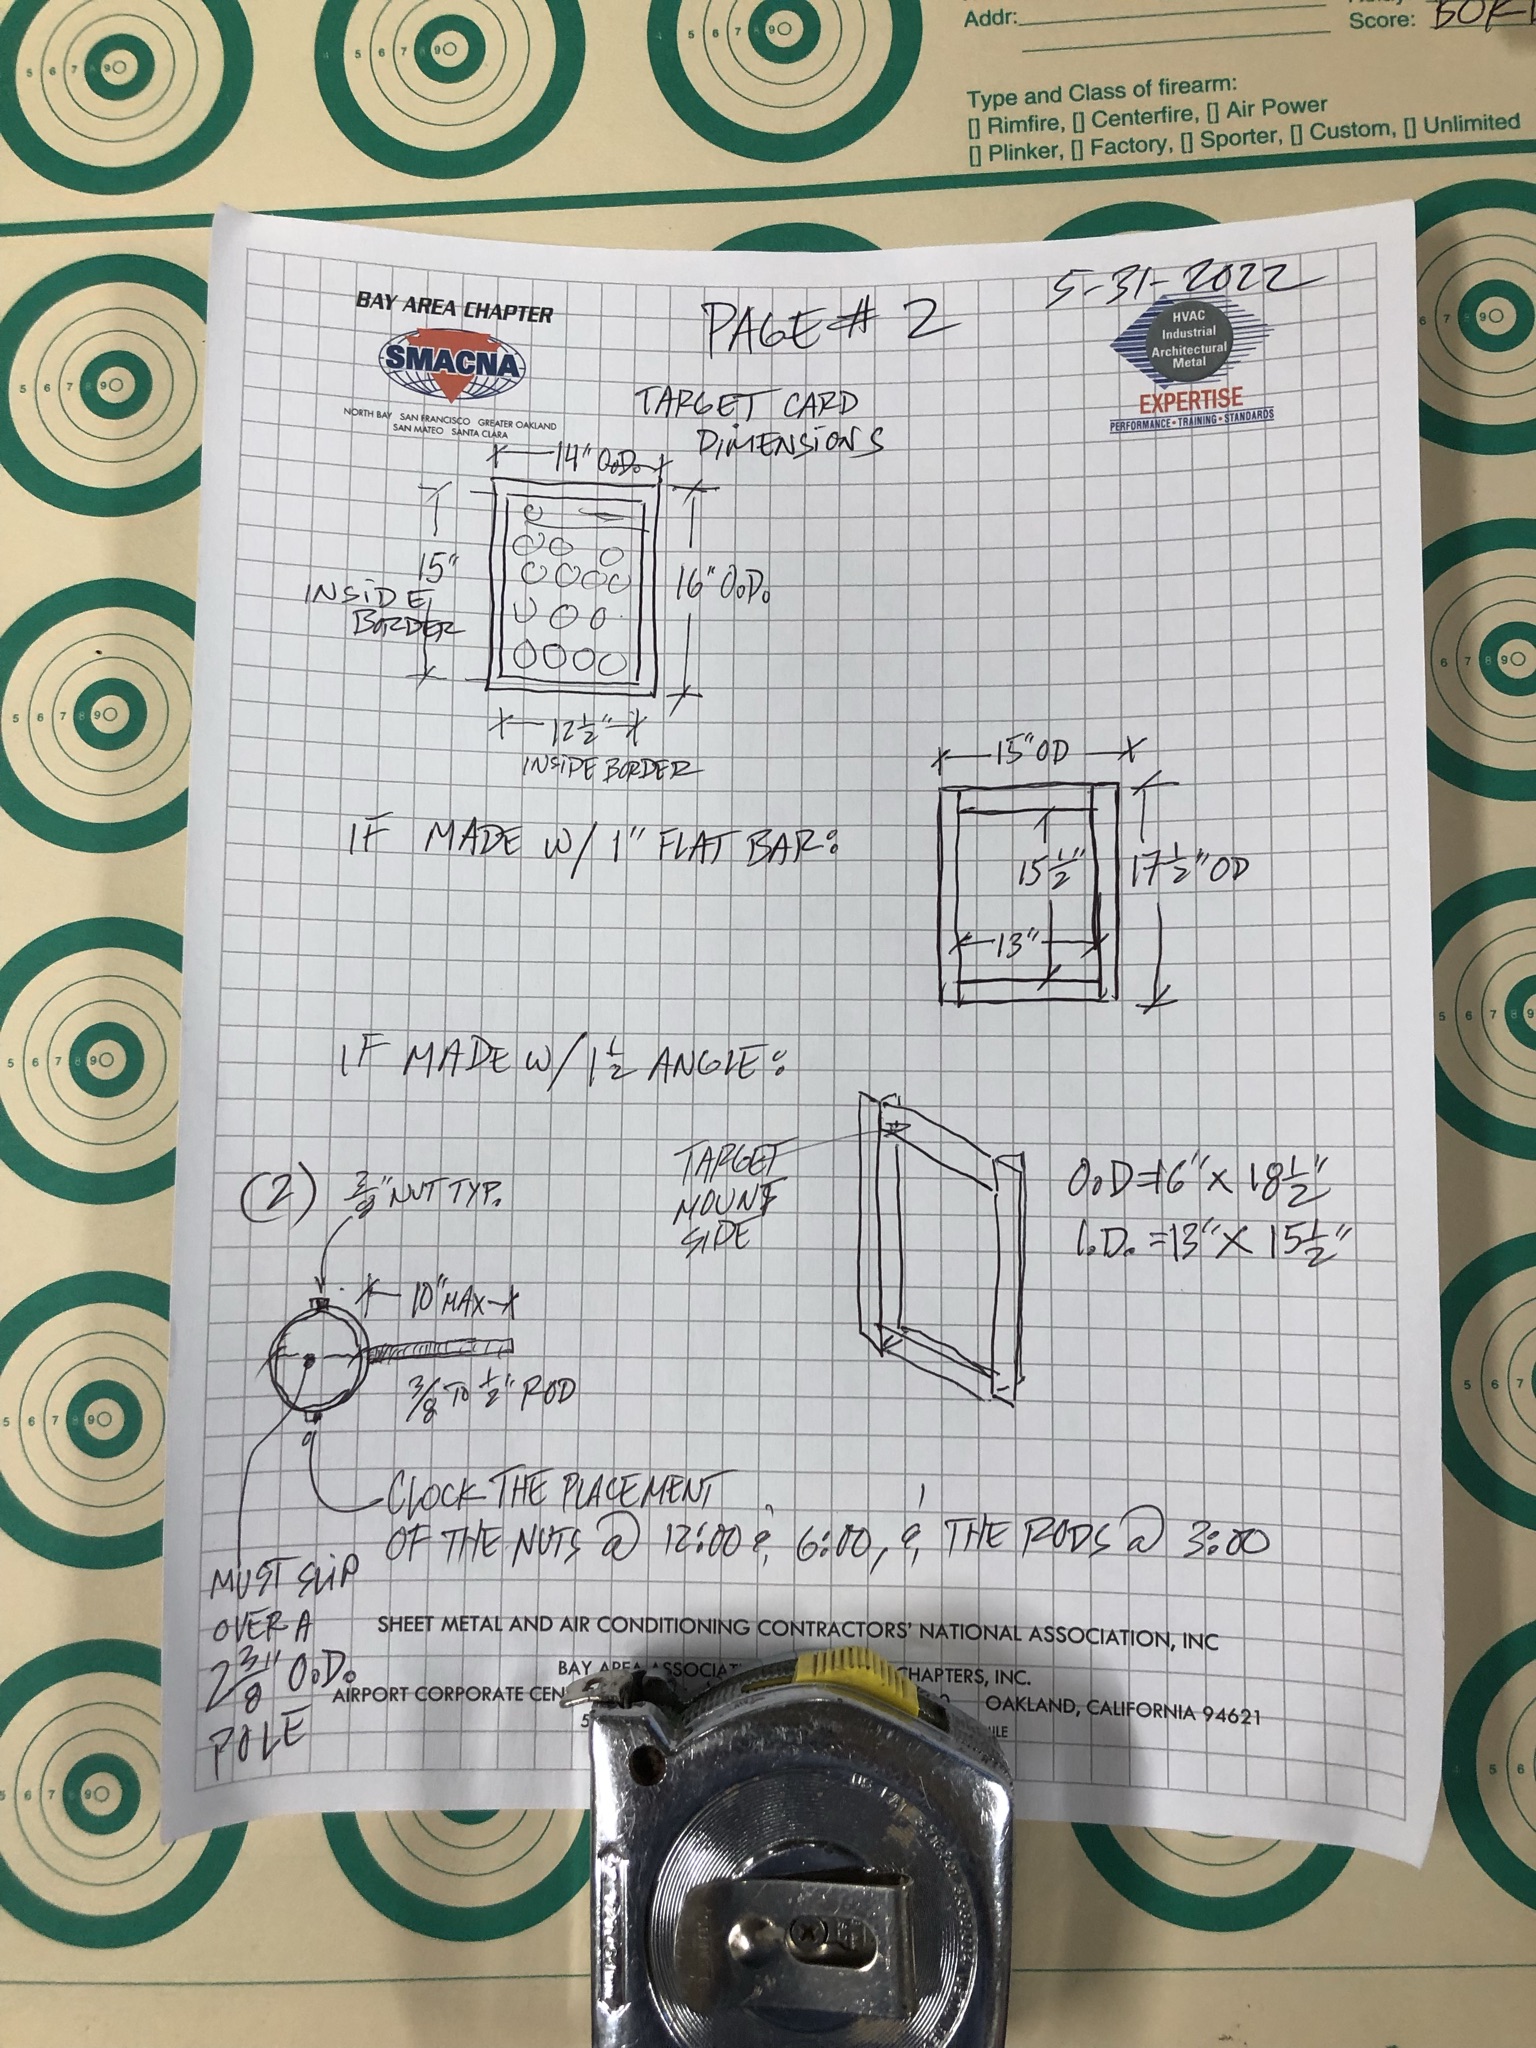 Addr:
Score:
Type and Class of firearm:
[] Rimfire, [] Centerfire, [] Air Power
[] Plinker, [] Factory, [] Sporter, [] Custom, [] Unlimited
5-31-2022
PAGE # 2
BAY AREA CHAPTER
SMACNA
NORTH BAY SAN FRANCISCO GREATER OAKLAND
SAN MATEO SANTA CLARA
HVAC
Industrial
Architectural
Metal
EXPERTISE
PERFORMANCE • TRAINING • STANDARDS
TARGET CARD
DIMENSIONS
14" O.D.
15"
INSIDE
BORDER
16" O.D.
12 1/2"
INSIDE BORDER
15" OD
IF MADE W/ 1" FLAT BAR:
15 1/2"
17 1/2" OD
13"
IF MADE W/ 1 1/2 ANGLE:
TARGET
MOUNT
SIDE
O.D=16" X 18 1/2"
I.D. =13" X 15 1/2"
(2) 3/8" NUT TYP.
10" MAX
3/8 TO 1/2" ROD
CLOCK THE PLACEMENT
OF THE NUTS @ 12:00 & 6:00, & THE RODS @ 3:00
MUST SLIP
OVER A
2 3/8" O.D.
POLE
SHEET METAL AND AIR CONDITIONING CONTRACTORS' NATIONAL ASSOCIATION, INC
BAY AREA CHAPTERS, INC.
AIRPORT CORPORATE OAKLAND, CALIFORNIA 94621